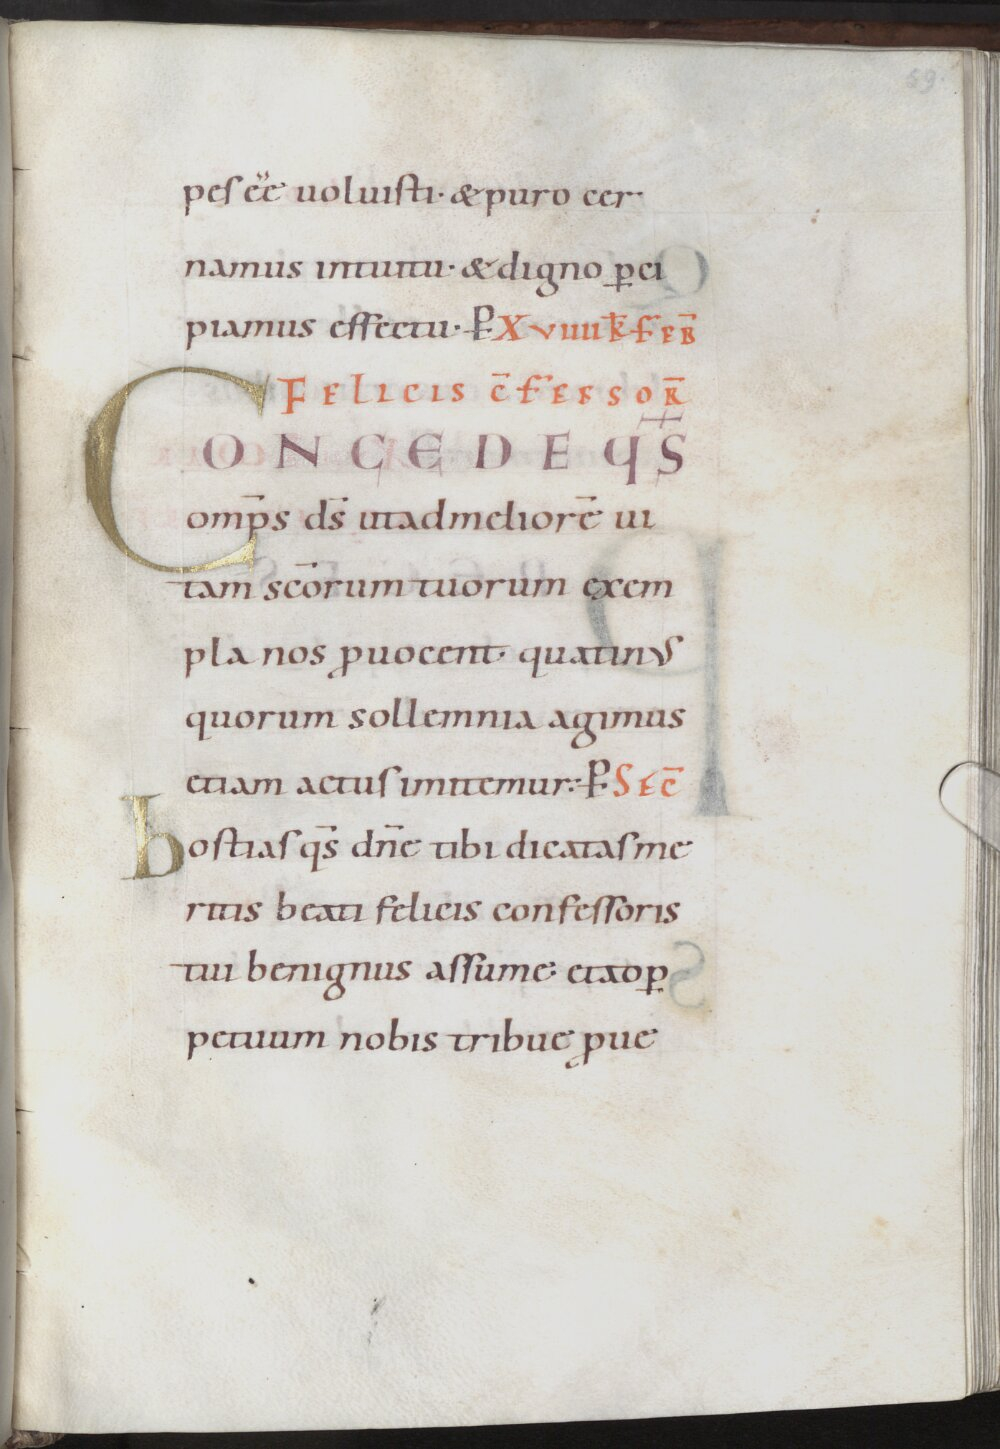 59.
pes ee̅ uoluisti· & puro cer·
namus intuitu· & digno p̲ci
piamus effectu· P XVIIII K̅ FEB̅
FELICIS C̅FESSOR̅
CONCEDE QS̅
omp̅s ds̅ ut ad meliore̅ ui
tam sc̅orum tuorum exem
pla nos ꝓuocent· quatinus
quorum sollemnia agimus
etiam actus imitemur· P SEC̅
hostias qs̅ dn̅e tibi dicatas me
ritis beati felicis confessoris
tui benignus assume· et ad ꝑ
petuum nobis tribue ꝓue